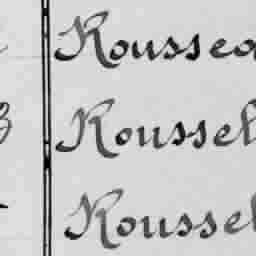 Roussea
Roussel
Roussel